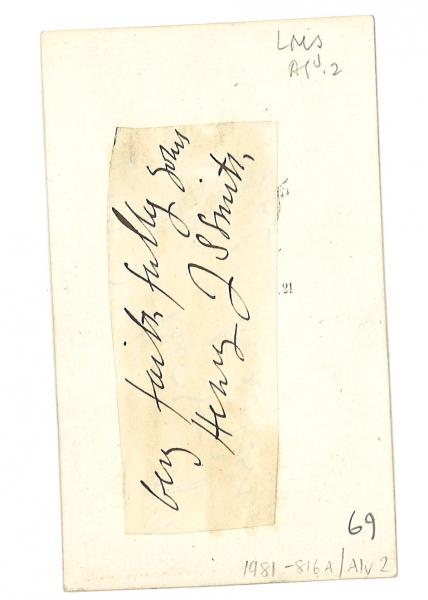 very faithfully yours
Henry J S Smith,
21
69
1981-816A/Alv 2